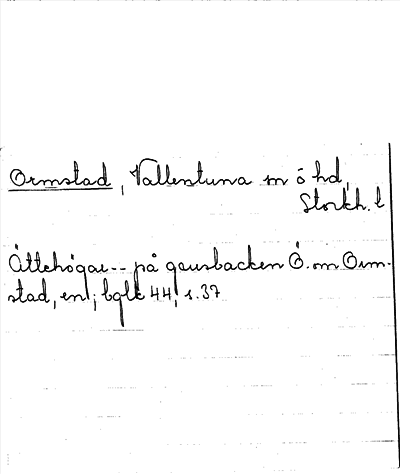 Ormstad, Vallentuna sn o hd,
Stockh. l
Ättehögar -- på gausbacken Ö. om Orm-
stad, enl; bglt 44, s. 37